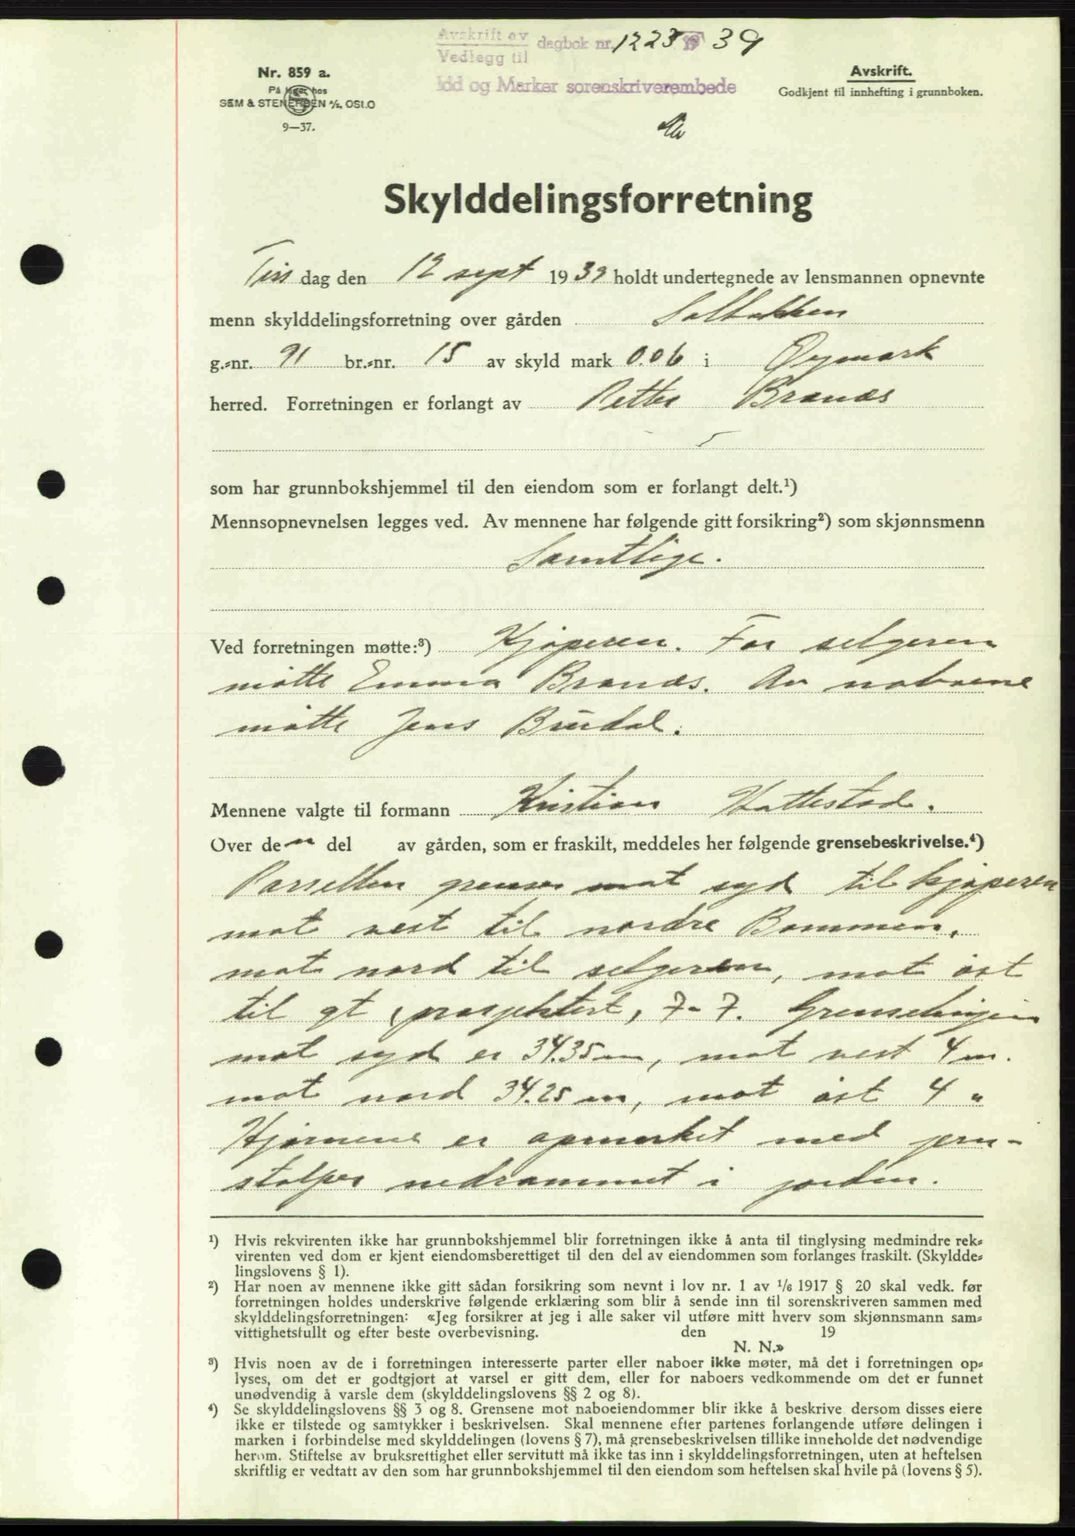 Avskrift av
Vedlegg til
dagbok nr. 1223 19 39
Idd og Marker sorenskriverembede
Nr. 859 a.
På lager hos
SEM & STENERSEN A/S. OSLO
9—37.
Avskrift.
Godkjent til innhefting i grunnboken.
Skylddelingsforretning
Tirsdag den 12 sept 1939 holdt undertegnede av lensmannen opnevnte
menn skylddelingsforretning over gården Solbakken
g.-nr. 91 br.-nr. 15 av skyld mark 0.06 i Øymark
herred. Forretningen er forlangt av Petter Brands
som har grunnbokshjemmel til den eiendom som er forlangt delt.¹)
Mennsopnevnelsen legges ved. Av mennene har følgende gitt forsikring²) som skjønnsmenn
Samtlige.
Ved forretningen møtte:³) Kjøperen. For selgeren
møtte Emma Brands. Av naboene
møtte Jens Buudal.
Mennene valgte til formann Kristian Hattestad.
Over den del av gården, som er fraskilt, meddeles her følgende grensebeskrivelse.⁴)
Parsellen grenser mot syd til kjøperen
mot vest til nordre Bommen,
mot nord til selgeren, mot øst
til gt, prosjektert, 7-7. Grenselinjen
mot syd er 34.35 m, mot vest 4 m.
mot nord 34.25 m, mot øst 4 "
Hjørnene er opmerket med jern-
stolper nedrammet i jorden.
¹) Hvis rekvirenten ikke har grunnbokshjemmel blir forretningen ikke å anta til tinglysing medmindre rek-
virenten ved dom er kjent eiendomsberettiget til den del av eiendommen som forlanges fraskilt. (Skyldde-
lingslovens § 1).
²) Har noen av mennene ikke gitt sådan forsikring som nevnt i lov nr. 1 av 1/6 1917 § 20 skal vedk. før
forretningen holdes underskrive følgende erklæring som blir å sende inn til sorenskriveren sammen med
skylddelingsforretningen: «Jeg forsikrer at jeg i alle saker vil utføre mitt hverv som skjønnsmann sam-
vittighetsfullt og efter beste overbevisning. den 19
N. N.»
³) Hvis noen av de i forretningen interesserte parter eller naboer ikke møter, må det i forretningen op-
lyses, om det er godtgjort at varsel er gitt dem, eller for naboers vedkommende om det er funnet
unødvendig å varsle dem (skylddelingslovens §§ 2 og 8).
⁴) Se skylddelingslovens §§ 3 og 8. Grensene mot naboeiendommer blir ikke å beskrive dersom disses eiere
ikke er tilstede og samtykker i beskrivelsen. Skal mennene efter partenes forlangende utføre delingen i
marken i forbindelse med skylddelingen (lovens § 7), må grensebeskrivelsen tillike inneholde det nødvendige
herom. Stiftelse av bruksrettighet eller servitutt må ikke tas inn i skylddelingsforretningen, uten at heftelsen
skriftlig er vedtatt av den som har grunnbokshjemmel til den eiendom som heftelsen skal hvile på (lovens § 5).